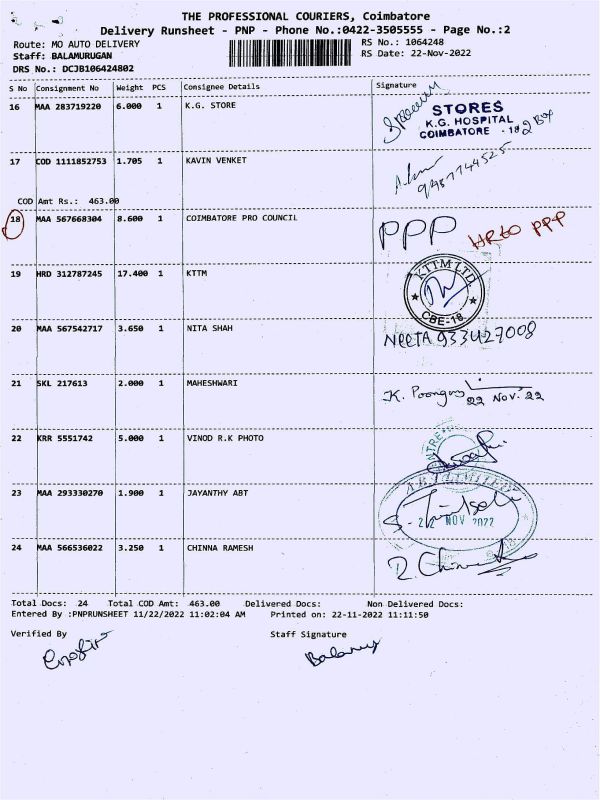 THE PROFESSIONAL COURIERS, Coimbatore
Delivery Runsheet - PNP - Phone No.:0422-3505555 - Page No.:2
Route: MO AUTO DELIVERY
RS No.: 1064248
Staff: BALAMURUGAN
RS Date: 22-Nov-2022
DRS No.: DCJB106424802
S No Consignment No Weight PCS Consignee Details Signature
16 MAA 283719220 6.000 1 K.G. STORE
STORES
K.G. HOSPITAL
COIMBATORE - 18
2 Box
17 COD 1111852753 1.705 1 KAVIN VENKET
9487744525
COD Amt Rs.: 463.00
18 MAA 567668304 8.600 1 COIMBATORE PRO COUNCIL PPP
PPP
19 HRD 312787245 17.400 1 KTTM
KTTM LTD.
CBE-18.
20 MAA 567542717 3.650 1 NITA SHAH
NEETA 933427008
21 SKL 217613 2.000 1 MAHESHWARI
22 NOV. 22
22 KRR 5551742 5.000 1 VINOD R.K PHOTO
23 MAA 293330270 1.900 1 JAYANTHY ABT
NOV 2022
24 MAA 566536022 3.250 1 CHINNA RAMESH
Total Docs: 24 Total COD Amt: 463.00 Delivered Docs: Non Delivered Docs:
Entered By :PNPRUNSHEET 11/22/2022 11:02:04 AM Printed on: 22-11-2022 11:11:50
Verified By Staff Signature